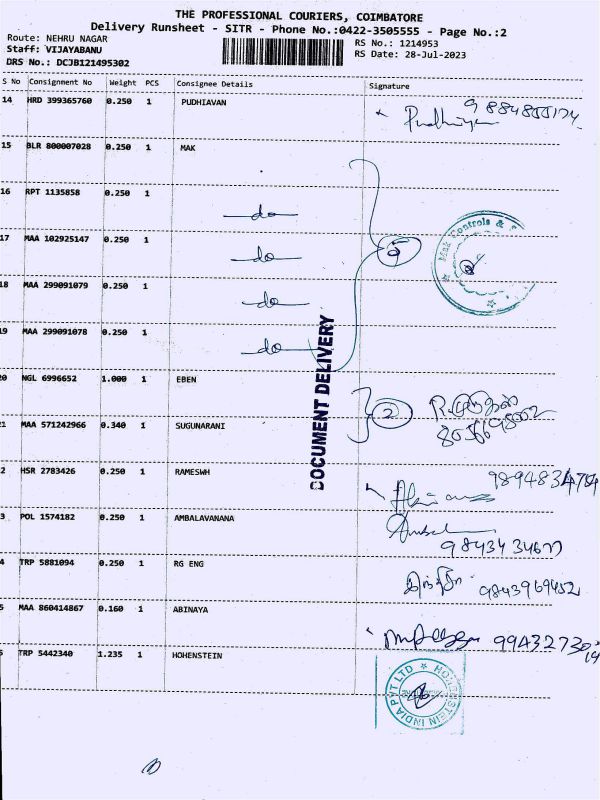 THE PROFESSIONAL COURIERS, COIMBATORE
Delivery Runsheet - SITR - Phone No.:0422-3505555 - Page No.:2
Route: NEHRU NAGAR
RS No.: 1214953
Staff: VIJAYABANU
RS Date: 28-Jul-2023
DRS No.: DCJB121495302
S No Consignment No Weight PCS Consignee Details Signature
14 HRD 399365760 0.250 1 PUDHIAVAN
15 BLR 800007028 0.250 1 MAK
16 RPT 1135858 0.250 1 do
17 MAA 102925147 0.250 1 do
18 MAA 299091079 0.250 1 do
19 MAA 299091078 0.250 1 do
5
Mak Controls &
DOCUMENT DELIVERY
20 NGL 6996652 1.000 1 EBEN
2
21 MAA 571242966 0.340 1 SUGUNARANI
2 HSR 2783426 0.250 1 RAMESWH
3 POL 1574182 0.250 1 AMBALAVANANA
9843434677
4 TRP 5881094 0.250 1 RG ENG
9843969452
5 MAA 860414867 0.160 1 ABINAYA
6 TRP 5442340 1.235 1 HOHENSTEIN
HOHENSTEIN INDIA PVT LTD